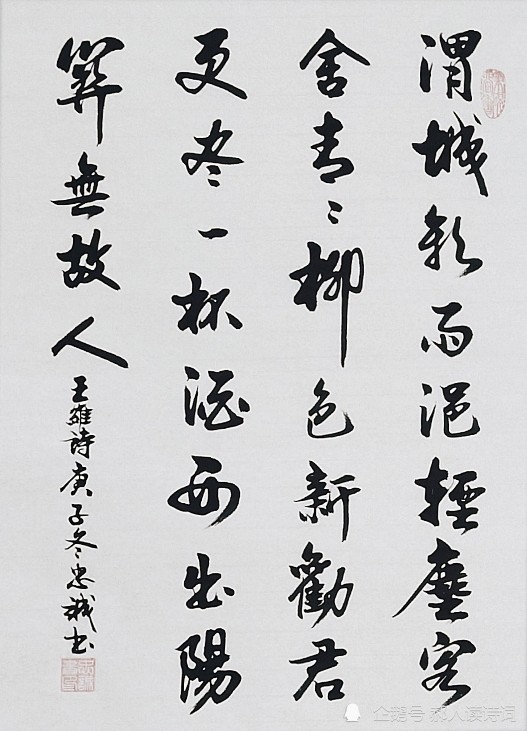 渭城朝雨浥輕塵客
舍青〻柳色新勸君
更尽一杯酒西出陽
關無故人
王維詩庚子冬忠誠书
企鹅号 人读诗词